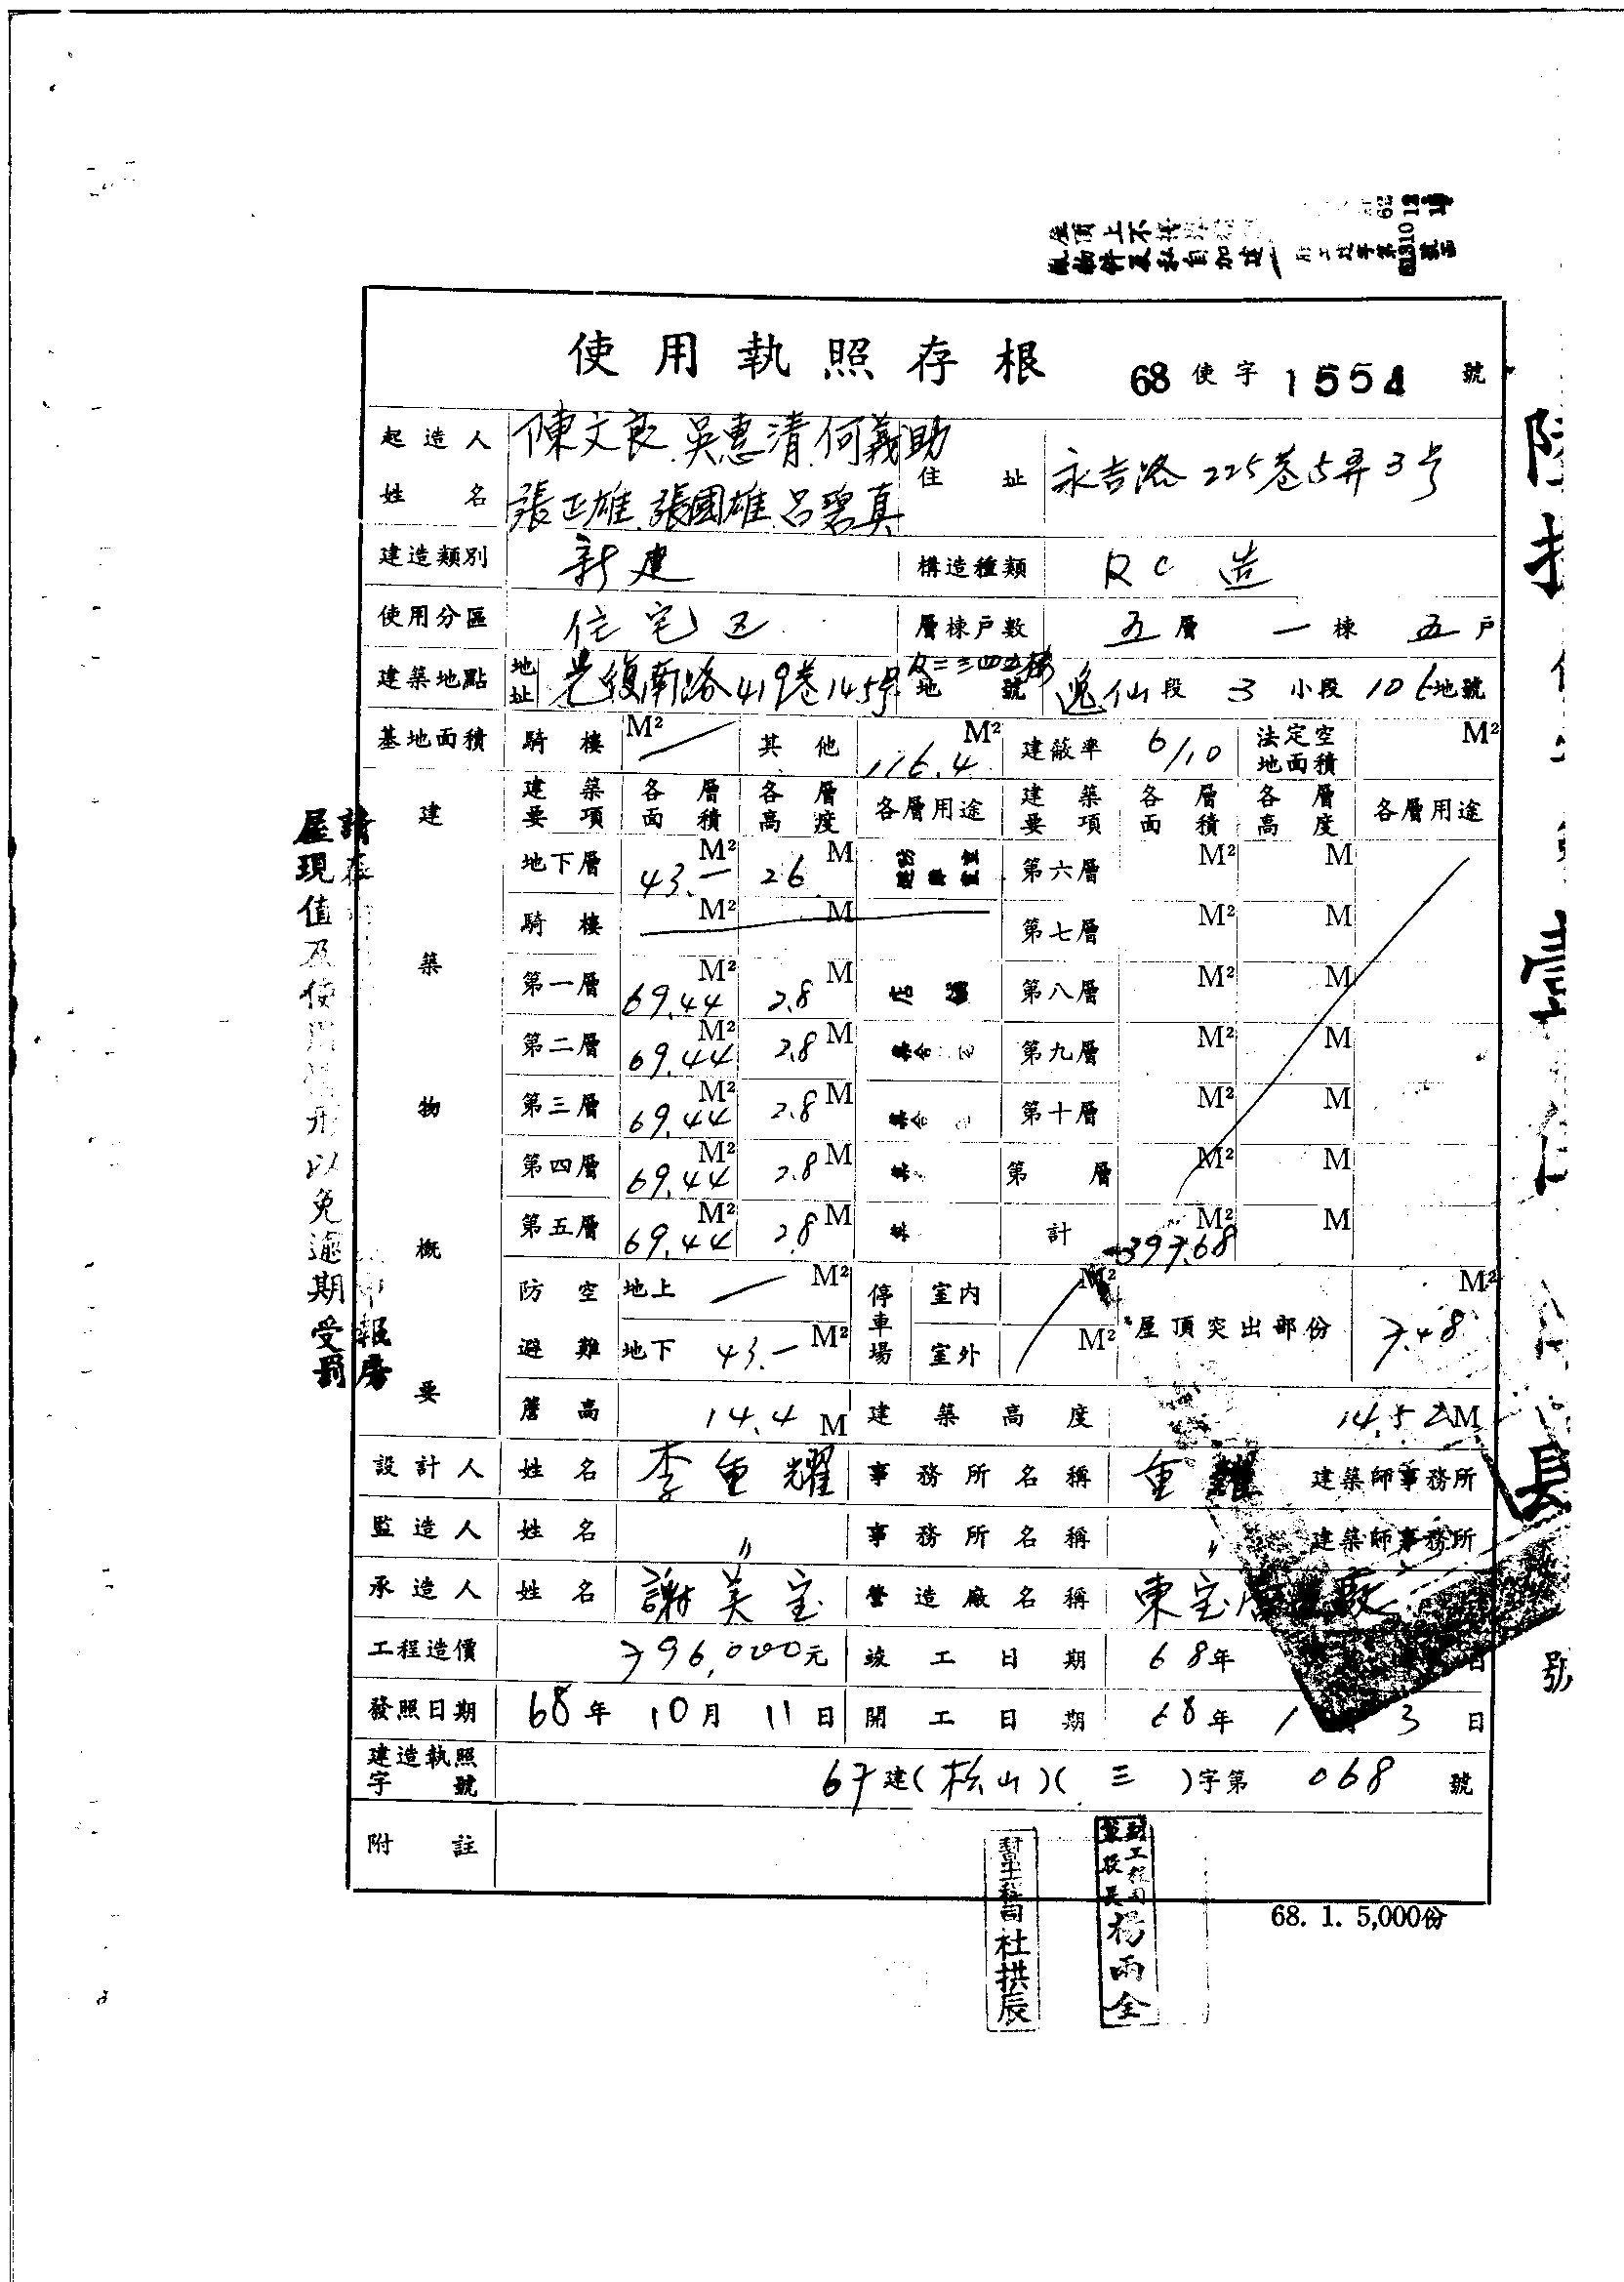 屋頂上不得
使用執照存根 68 使字 1554 號
起造人姓名 陳文良.吳惠清.何義助 張正雄.張國雄.呂碧真 住址 永吉路225巷5弄3号
建造類別 新建 構造種類 RC造
使用分區 住宅区 層棟戶數 五層 一棟 五戶
建築地點 地址 光復南路419巷145号及二三四五樓 地號 逸仙段 3 小段 106地號
基地面積 騎樓 M² 其他 116.4 M² 建蔽率 6/10 法定空地面積 M²
建築物概要 建築要項 各層面積 各層高度 各層用途 建築要項 各層面積 各層高度 各層用途
地下層 43.— M² 2.6 M 第六層 M² M
騎樓 M² M 第七層 M² M
第一層 69.44 M² 2.8 M 店舖 第八層 M² M
第二層 69.44 M² 2.8 M 第九層 M² M
第三層 69.44 M² 2.8 M 第十層 M² M
第四層 69.44 M² 2.8 M 第 層 M² M
第五層 69.44 M² 2.8 M 計 397.68 M² M
防空避難 地上 M² 停車場 室內 M² 屋頂突出部份 7.48 M²
地下 43.— M² 室外 M²
簷高 14.4 M 建築高度 14.52 M
設計人 姓名 李重耀 事務所名稱 重耀 建築師事務所
監造人 姓名 〃 事務所名稱 〃 建築師事務所
承造人 姓名 謝美宝 營造廠名稱 東宝營造廠
工程造價 796,000元 竣工日期 68年 日
發照日期 68年 10月 11日 開工日期 68年 1月 3日
建造執照字號 67建(松山)(三)字第 068 號
附註
68. 1. 5,000份
副工程司 杜拱辰
副工程司兼股長 楊雨全
屋現值及使用情形以免逾期受罰
號